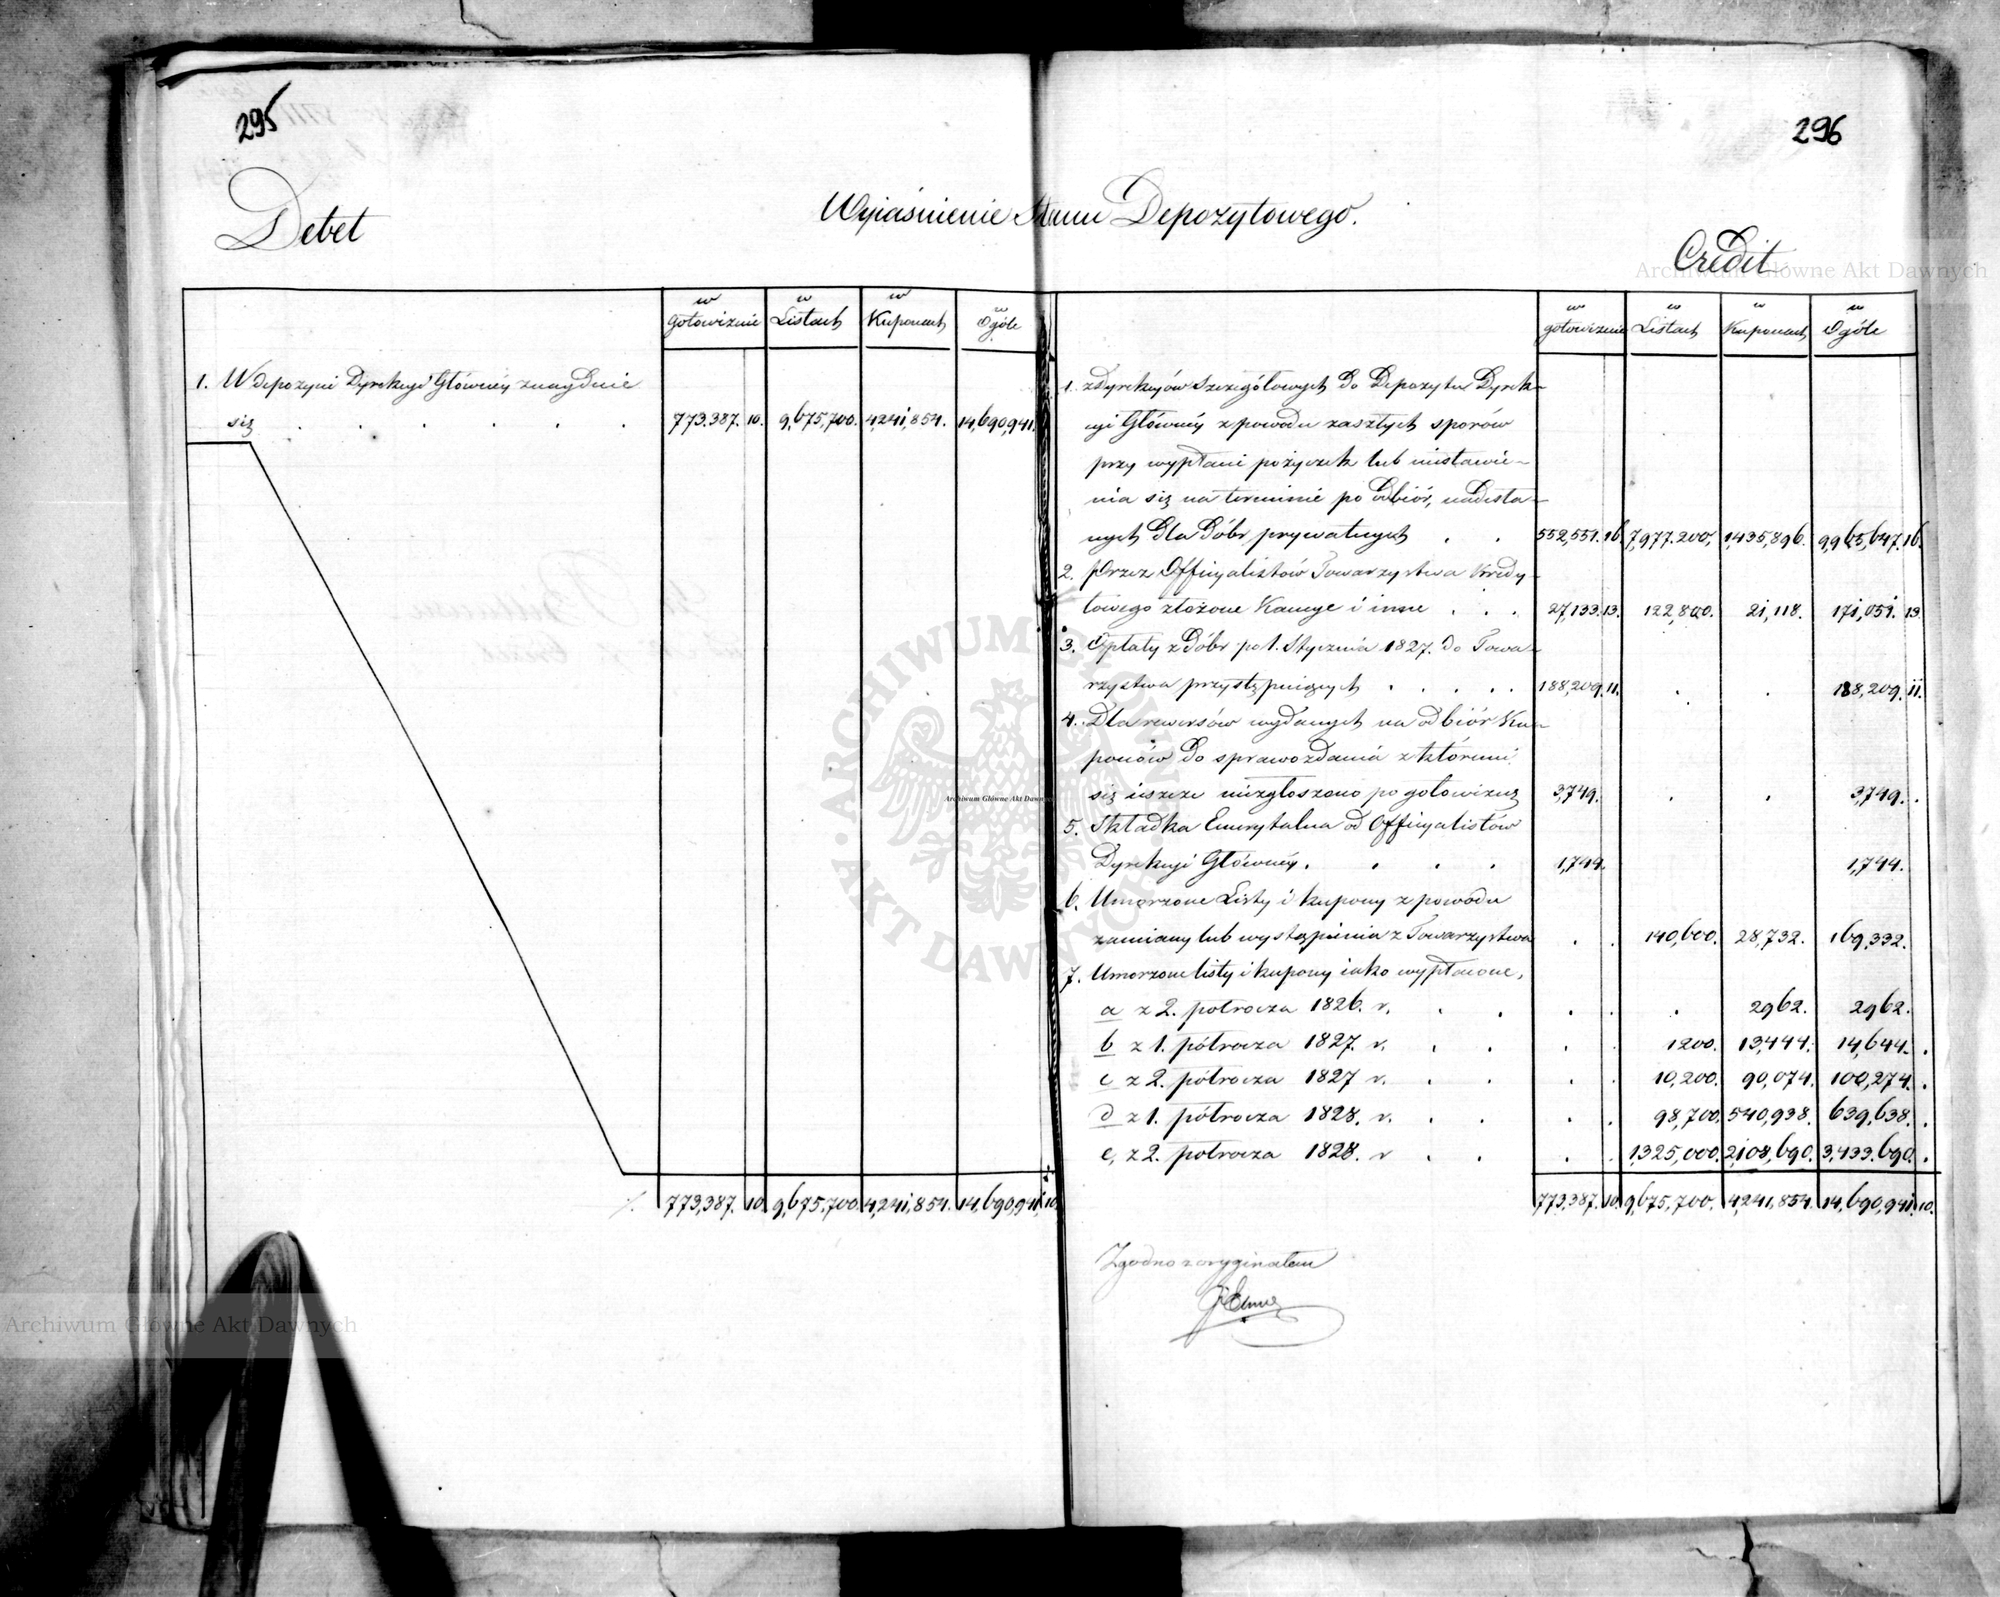 295
296
Wyiaśnienie Stanu Depozytowego.
Debet
Credit
w gotowiźnie | w Listach | w Kuponach | w Ogóle
1. W depozyci Dyrekcyi Główney znayduie
się . . . . . . 773.387. 10. 9,675,700. 4,241,854. 14,690,941.
773,387. 10 9,675,700. 4,241,854. 14,690,941. 10.
w gotowiznie | w Listach | w Kuponach | w Ogóle
1. z Dyrekcyów Szczegółowych do Depozytu Dyrek-
cyi Główney z powodu zaszłych sporów
przy wypłaci pożyczek lub niestawie-
nia się na terminie po odbiór, nadesła-
nych dla Dóbr prywatnych . . 552,551. 16. 7,977.200. 1,435,896. 9,965,647. 16.
2. Przez Officyalistów Towarzystwa Kredy-
towego złożone Kaucye i inne . . . 27,133. 13. 122,800. 21,118. 171,051. 13.
3. Opłaty z Dóbr po 1. Stycznia 1827. do Towa-
rzystwa przystępuiących . . . . . 188,209. 11. . . 188,209. 11.
4. Dla rewersów wydanych na odbiór Ku-
ponów do sprawozdania z któremi
się ieszcze niezgłoszono po gotowiznę 3,749. . . 3,749. .
5. Składka Emerytalna od Officyalistów
Dyrekcyi Główney. . . . . 1,744. 1,744.
6. Umorzone Listy i kupony z powodu
zamiany lub wystąpienia z Towarzystwa . . 140,600. 28,732. 169,332.
7. Umorzone listy i kupony iako wypłacone,
a z 2. półrocza 1826. r. . . . . . 2962. 2962.
b z 1. półrocza 1827. r. . . . . 1200. 13,444. 14,644. .
c z 2. półrocza 1827 r. . . . . 10,200. 90,074. 100,274. .
d z 1. półrocza 1828. r. . . . . 98,700. 540,938. 639,638. .
e, z 2. półrocza 1828. r . . . . 1,325,000. 2,108,690. 3,433.690. .
773,387. 10. 9,675,700. 4,241,854. 14,690,941. 10.
Zgodno z oryginałem
Archiwum Główne Akt Dawnych
Archiwum Główne Akt Dawnych
Archiwum Główne Akt Dawnych
ARCHIWUM GŁÓWNE AKT DAWNYCH